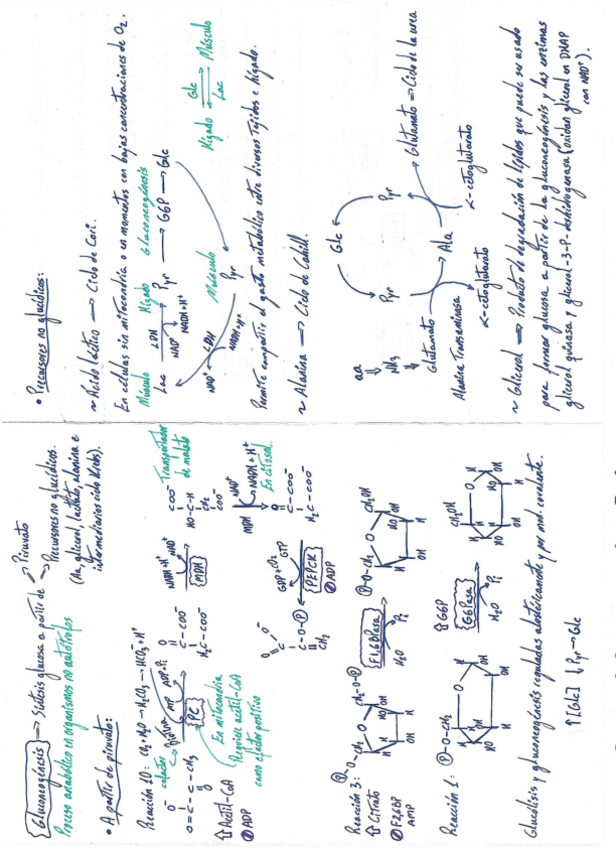 Gluconeogénesis → Síntesis glucosa a partir de → Piruvato
→ Precursores no glucídicos.
(Aa, glicerol, lactato, alanina e
intermediarios ciclo krebs).
Proceso anabólico en organismos no autótrofos
• A partir de piruvato:
Reacción 10: CO₂ + H₂O → H₂CO₃ → HCO₃⁻ + H⁺
cofactor
Biotina
ATP ADP+Pi
{PC}
En mitocondria
Requiere acetil-CoA
como efector positivo
⇧ Acetil-CoA
ADP
NADH+H⁺ NAD⁺
{MDH}
Transportador
de malato
MDH
NAD⁺
NADH+H⁺
En citosol.
GDP+CO₂
GTP
{PEPCK}
ADP
Reacción 3:
⇧ Citrato
F2,6BP
AMP
{F1,6BPasa}
H₂O Pi
Reacción 1:
⇧ G6P
{G6Pasa}
H₂O Pi
Glucólisis y gluconeogénesis reguladas alostéricamente y por mod. covalente.
↑ [Glc] ↓ Pyr → Glc
• Precursores no glucídicos:
~ Ácido láctico → Ciclo de Cori.
En células sin mitocondria o en momentos con bajas concentraciones de O₂.
Músculo Hígado Gluconeogénesis
Lac → Pyr → G6P → Glc
LDH
NAD⁺ NADH+H⁺
Hígado Glc Músculo
Lac
Músculo
Pyr
LDH
NAD⁺ NADH+H⁺
Permite compartir el gasto metabólico entre diversos tejidos e hígado.
~ Alanina → Ciclo de Cahill.
Glc
aa
NH₃
Pyr Pyr
Glutamato
Ala
Glutamato → Ciclo de la urea
Alanina Transaminasa
α-cetoglutarato
α-cetoglutarato
~ Glicerol → Producto de degradación de lípidos que puede ser usado
para formar glucosa a partir de la gluconeogénesis y las enzimas
glicerol quinasa y glicerol-3-P-deshidrogenasa (oxidan glicerol en DHAP
con NAD⁺).